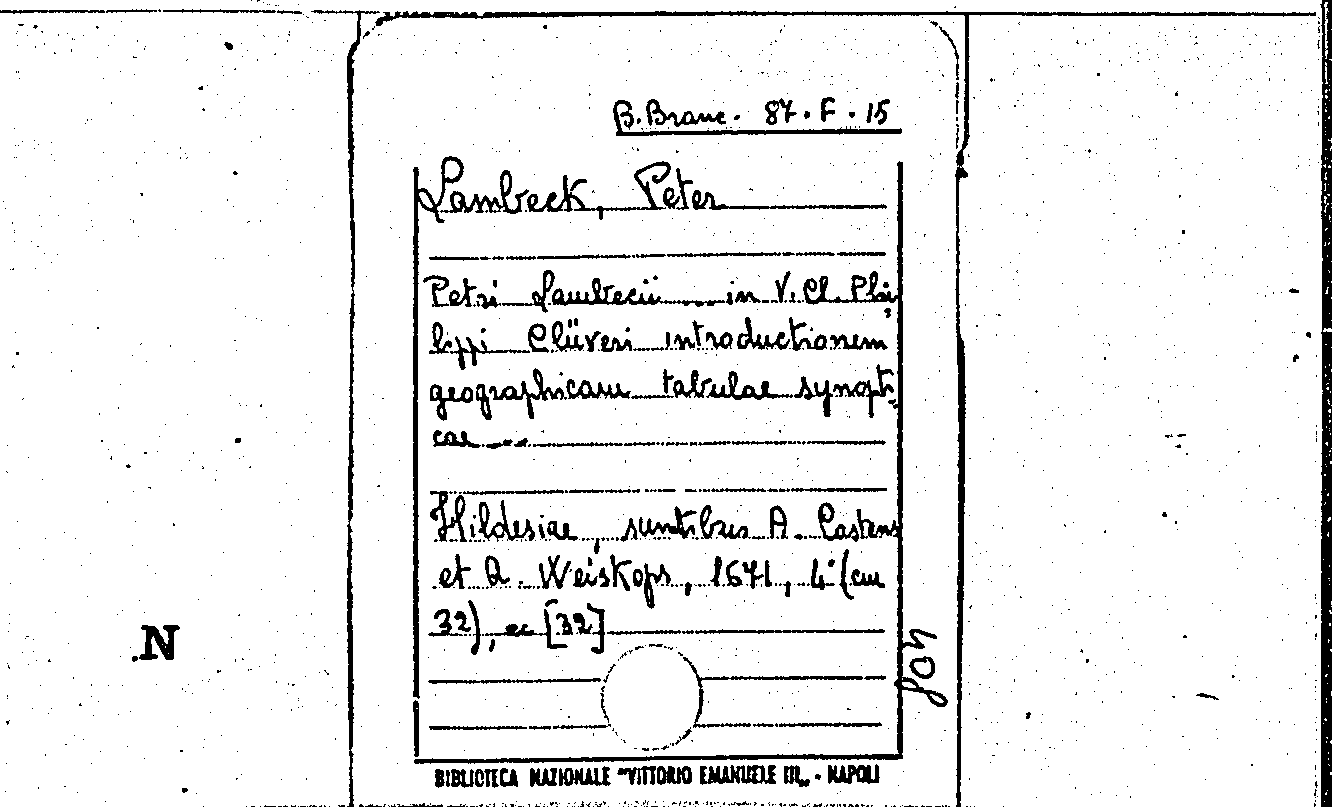 B. Branc. 87. F. 15
Lambeck, Peter
Petri Lambecii ... in V. Cl. Phi=
lippi Clüveri introductionem
geographicam tabulae synopti=
cae ...
Hildesiae, sumtibus A. Castens
et Q. Weiskops, 1671, 4° (cm
32), cc [32]
408
N
BIBLIOTECA NAZIONALE "VITTORIO EMANUELE III„ - NAPOLI